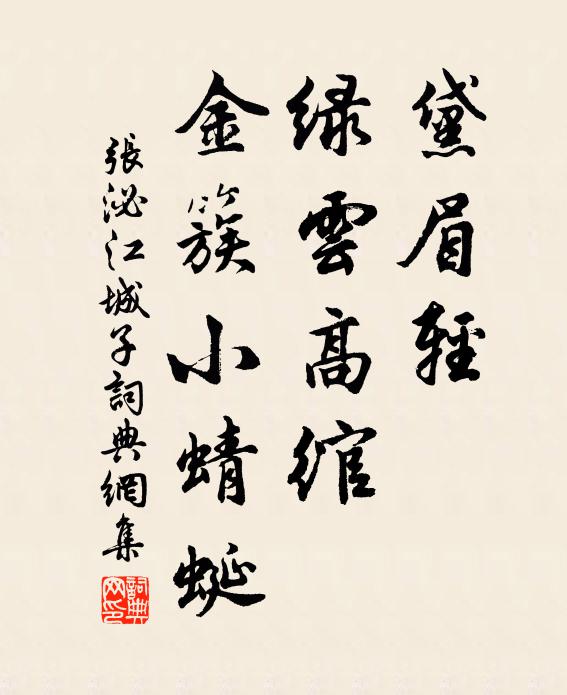 黛眉輕
緑雲高綰
金簇小蜻蜓
張泌江城子詞典網集
詞典网印